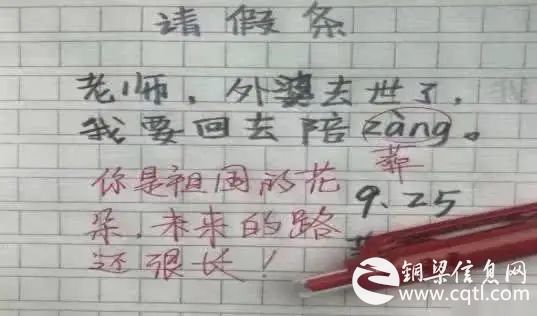 请假条
老师，外婆去世了，
我要回去陪zàng。
葬
你是祖国的花
朵，未来的路
还很长！
9.25
铜梁信息网
www.cqtl.com